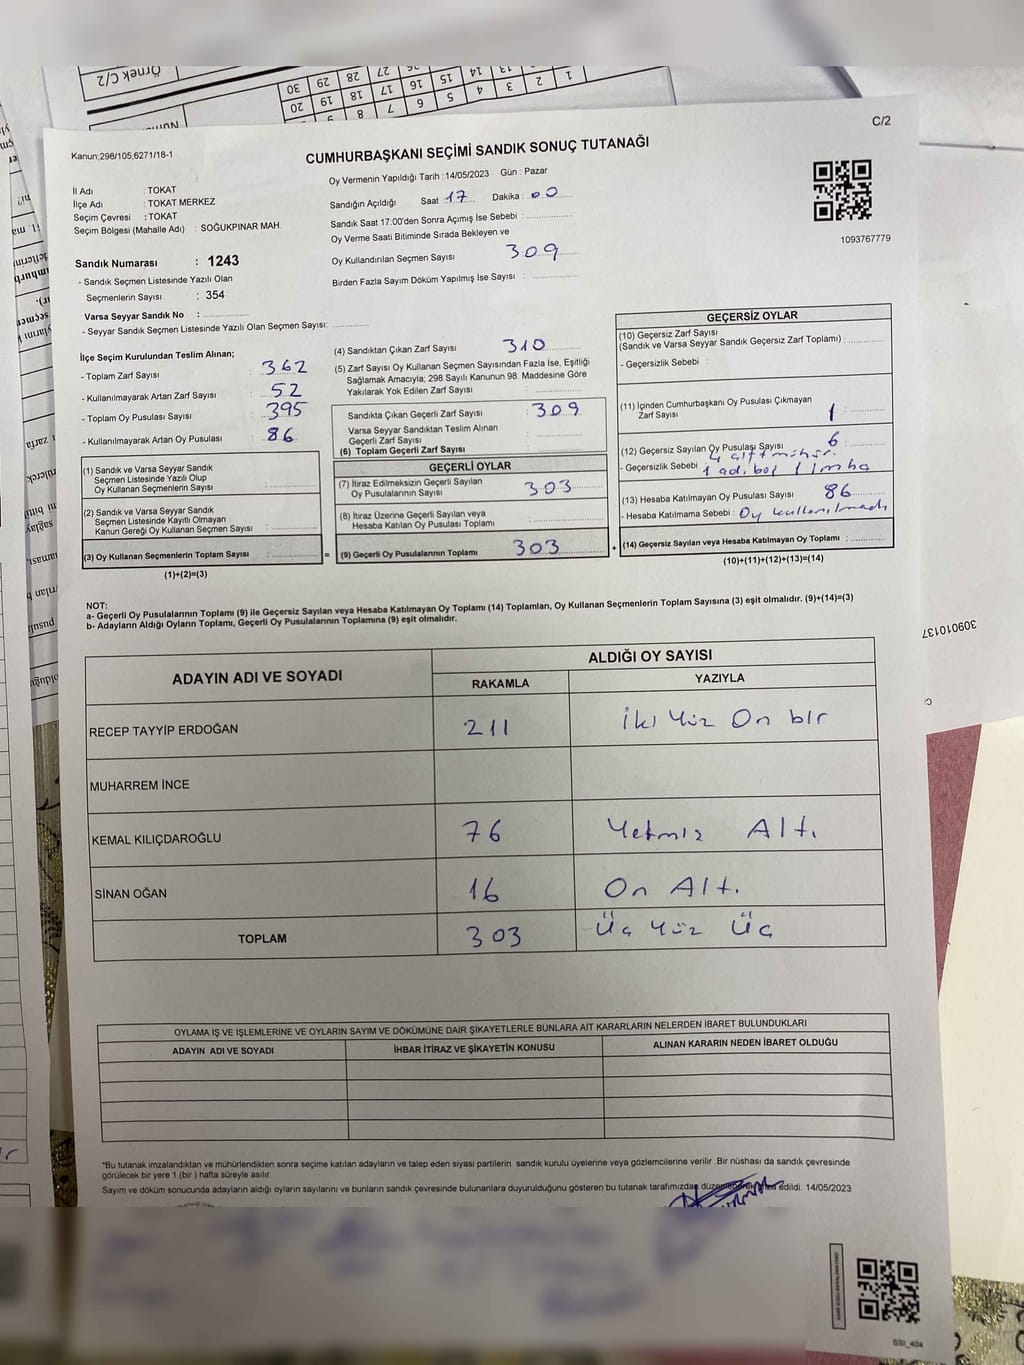 Örnek C/2
C/2
Kanun;298/105,6271/18-1
CUMHURBAŞKANI SEÇİMİ SANDIK SONUÇ TUTANAĞI
İl Adı : TOKAT
İlçe Adı : TOKAT MERKEZ
Seçim Çevresi : TOKAT
Seçim Bölgesi (Mahalle Adı) : SOĞUKPINAR MAH.
Oy Vermenin Yapıldığı Tarih :14/05/2023 Gün : Pazar
Sandığın Açıldığı Saat 17 Dakika : 00
Sandık Saat 17:00'den Sonra Açımış İse Sebebi :
Oy Verme Saati Bitiminde Sırada Bekleyen ve
Oy Kullandırılan Seçmen Sayısı 309
Birden Fazla Sayım Döküm Yapılmış İse Sayısı :
1093767779
Sandık Numarası : 1243
- Sandık Seçmen Listesinde Yazılı Olan
Seçmenlerin Sayısı : 354
Varsa Seyyar Sandık No :
- Seyyar Sandık Seçmen Listesinde Yazılı Olan Seçmen Sayısı:
İlçe Seçim Kurulundan Teslim Alınan;
- Toplam Zarf Sayısı : 362
- Kullanılmayarak Artan Zarf Sayısı : 52
- Toplam Oy Pusulası Sayısı : 395
- Kullanılmayarak Artan Oy Pusulası : 86
(1) Sandık ve Varsa Seyyar Sandık
Seçmen Listesinde Yazılı Olup
Oy Kullanan Seçmenlerin Sayısı :
(2) Sandık ve Varsa Seyyar Sandık
Seçmen Listesinde Kayıtlı Olmayan
Kanun Gereği Oy Kullanan Seçmen Sayısı :
(3) Oy Kullanan Seçmenlerin Toplam Sayısı :
(1)+(2)=(3)
=
(4) Sandıktan Çıkan Zarf Sayısı 310
(5) Zarf Sayısı Oy Kullanan Seçmen Sayısından Fazla İse, Eşitliği
Sağlamak Amacıyla; 298 Sayılı Kanunun 98. Maddesine Göre
Yakılarak Yok Edilen Zarf Sayısı :
Sandıkta Çıkan Geçerli Zarf Sayısı : 309
Varsa Seyyar Sandıktan Teslim Alınan
Geçerli Zarf Sayısı :
(6) Toplam Geçerli Zarf Sayısı :
GEÇERLİ OYLAR
(7) İtiraz Edilmeksizin Geçerli Sayılan
Oy Pusulalarının Sayısı : 303
(8) İtiraz Üzerine Geçerli Sayılan veya
Hesaba Katılan Oy Pusulası Toplamı :
(9) Geçerli Oy Pusulalarının Toplamı 303
+
GEÇERSİZ OYLAR
(10) Geçersiz Zarf Sayısı
(Sandık ve Varsa Seyyar Sandık Geçersiz Zarf Toplamı) :
- Geçersizlik Sebebi :
(11) İçinden Cumhurbaşkanı Oy Pusulası Çıkmayan
Zarf Sayısı 1 :
(12) Geçersiz Sayılan Oy Pusulası Sayısı 6
4 çift mühür.
- Geçersizlik Sebebi 1 ad. boş 1 imha
(13) Hesaba Katılmayan Oy Pusulası Sayısı 86
- Hesaba Katılmama Sebebi : Oy kullanılmadı
(14) Geçersiz Sayılan veya Hesaba Katılmayan Oy Toplamı :
(10)+(11)+(12)+(13)=(14)
NOT:
a- Geçerli Oy Pusulalarının Toplamı (9) ile Geçersiz Sayılan veya Hesaba Katılmayan Oy Toplamı (14) Toplamları, Oy Kullanan Seçmenlerin Toplam Sayısına (3) eşit olmalıdır. (9)+(14)=(3)
b- Adayların Aldığı Oyların Toplamı, Geçerli Oy Pusulalarının Toplamına (9) eşit olmalıdır.
309010137
ADAYIN ADI VE SOYADI
ALDIĞI OY SAYISI
RAKAMLA YAZIYLA
RECEP TAYYİP ERDOĞAN 211 İki Yüz On bir
MUHARREM İNCE
KEMAL KILIÇDAROĞLU 76 Yetmiş Altı
SİNAN OĞAN 16 On Altı
TOPLAM 303 Üç Yüz Üç
OYLAMA İŞ VE İŞLEMLERİNE VE OYLARIN SAYIM VE DÖKÜMÜNE DAİR ŞİKAYETLERLE BUNLARA AİT KARARLARIN NELERDEN İBARET BULUNDUKLARI
ADAYIN ADI VE SOYADI İHBAR İTİRAZ VE ŞİKAYETİN KONUSU ALINAN KARARIN NEDEN İBARET OLDUĞU
*Bu tutanak imzalandıktan ve mühürlendikten sonra seçime katılan adayların ve talep eden siyasi partilerin sandık kurulu üyelerine veya gözlemcilerine verilir .Bir nüshası da sandık çevresinde
görülecek bir yere 1 (bir ) hafta süreyle asılır.
Sayım ve döküm sonucunda adayların aldığı oyların sayılarını ve bunların sandık çevresinde bulunanlara duyurulduğunu gösteren bu tutanak tarafımızdan edildi. 14/05/2023
SSI_404